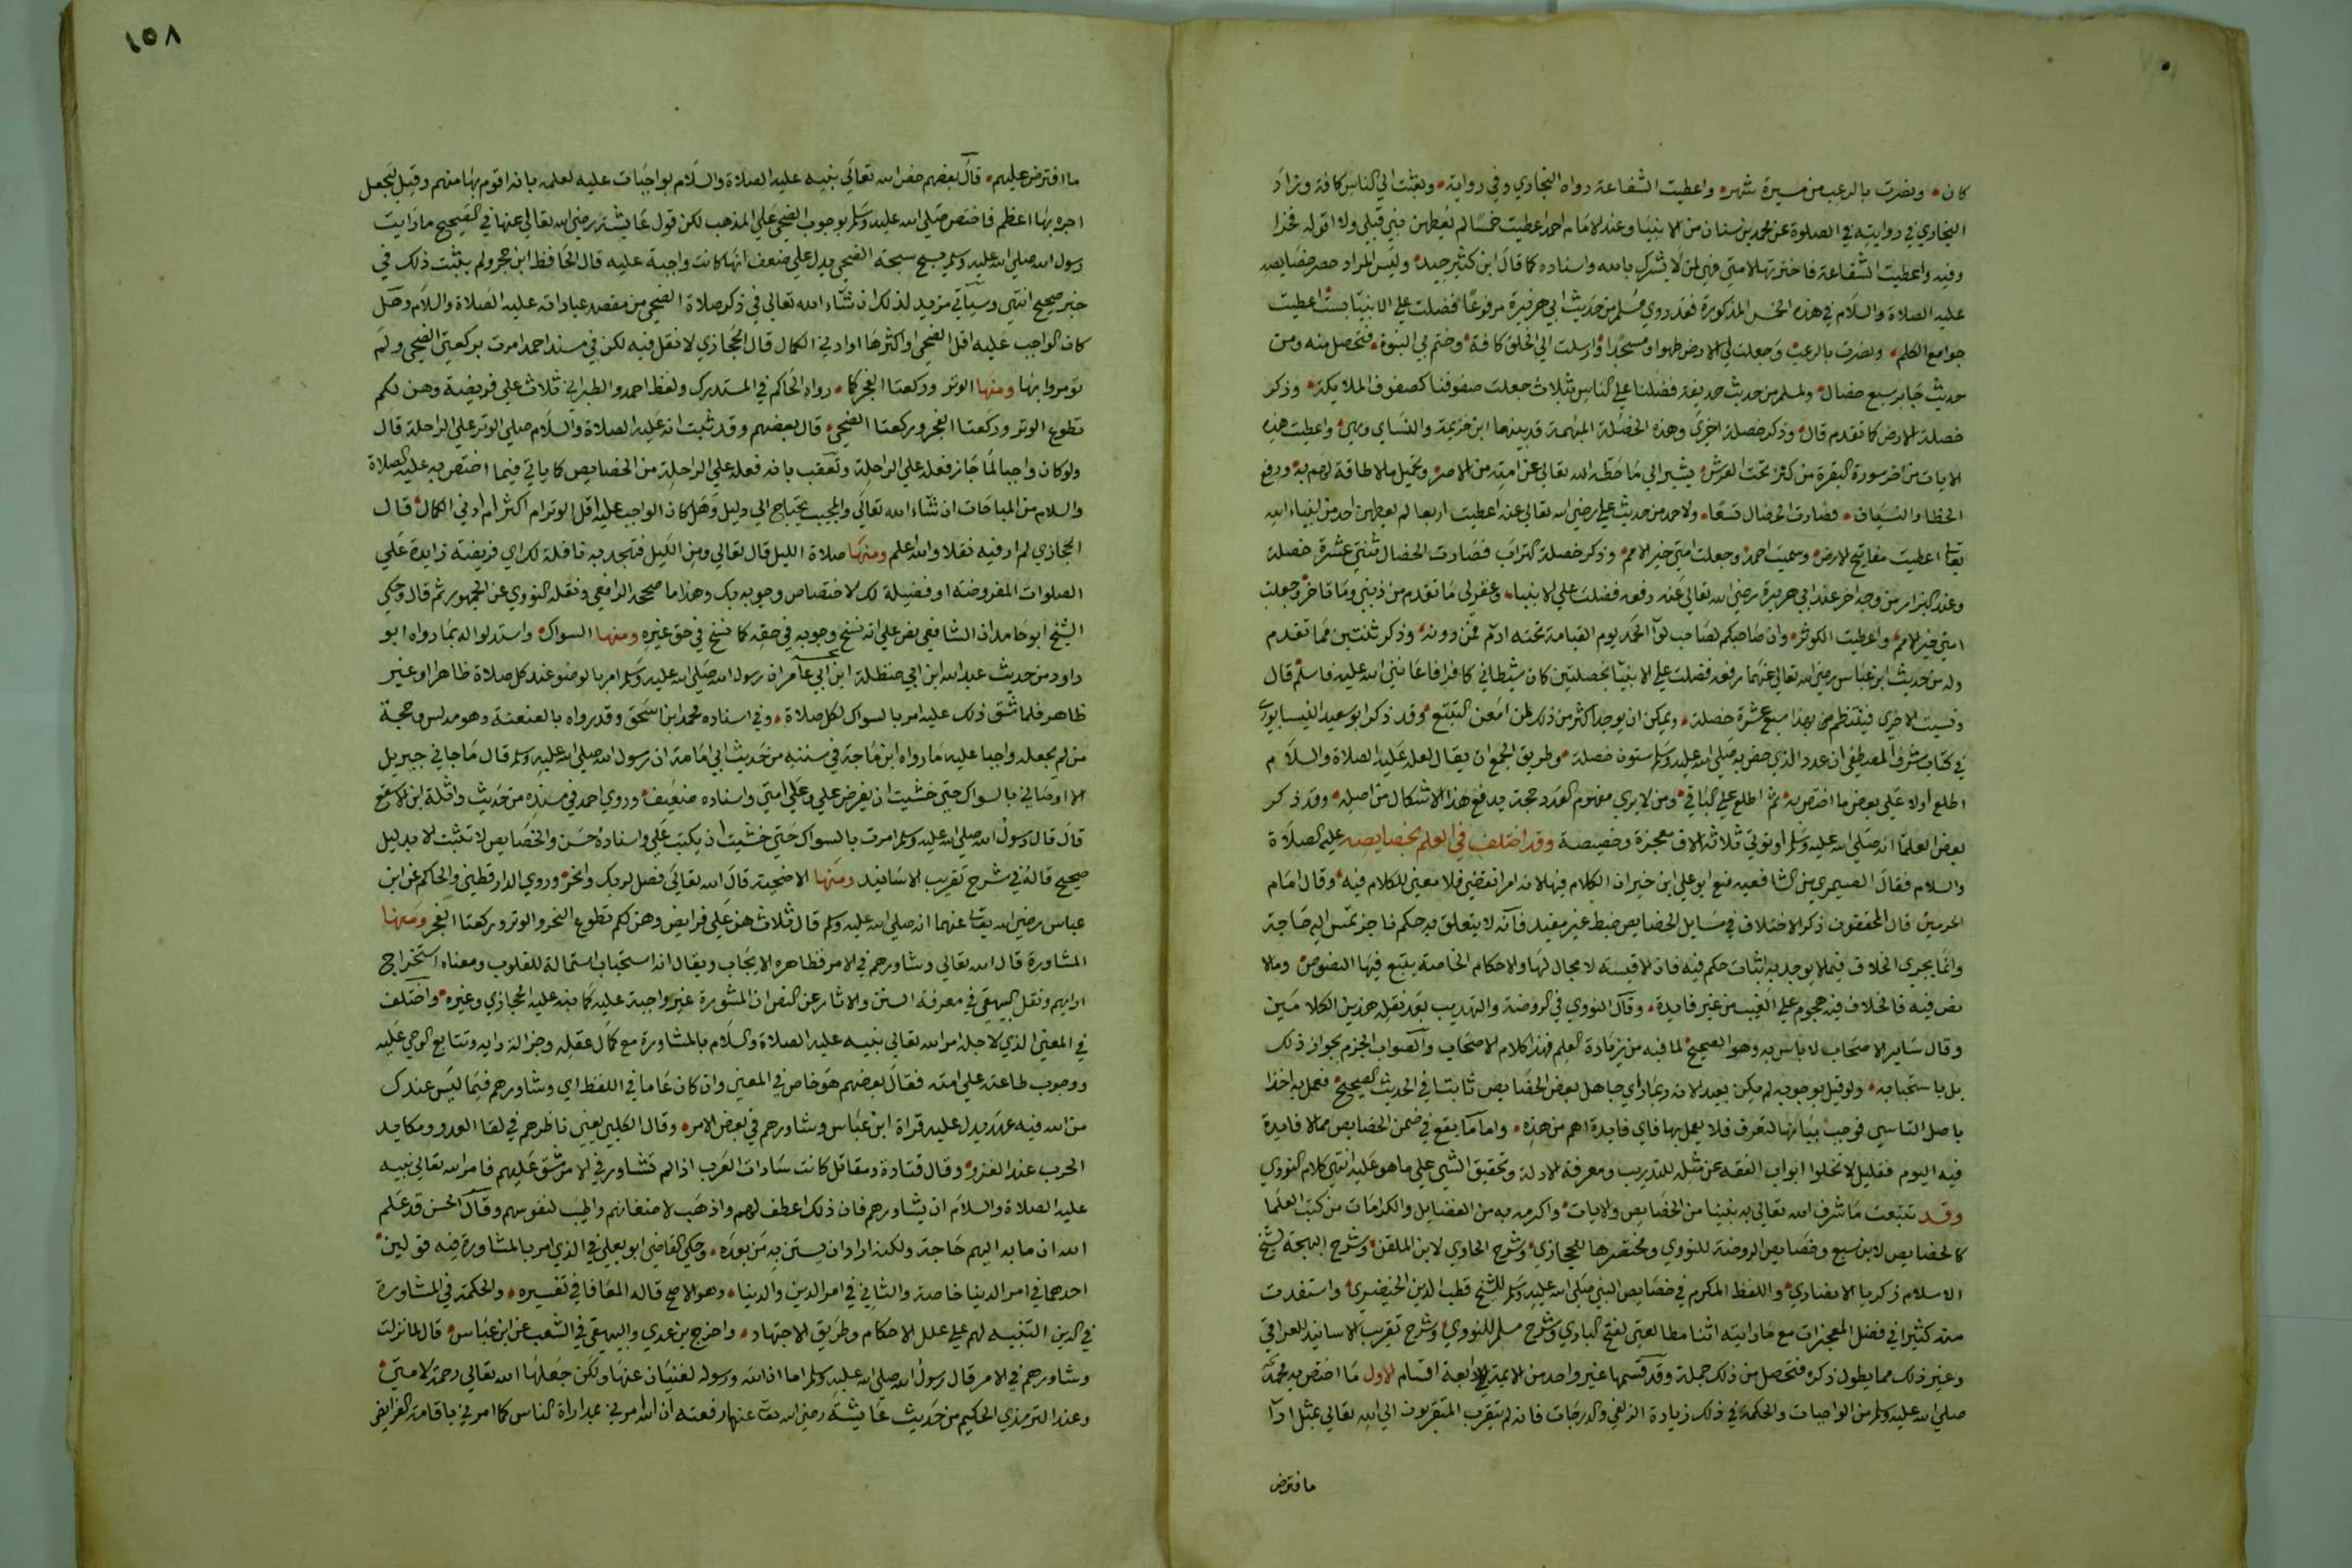 كان ونصرت بالرعب من مسيرة شهر واعطيت الشفاعة رواه البخاري وفي رواية وبعثت الي الناس كافة وزاد
البخاري في روايته في الصلوة عن محمد بن سنان من الانبيا وعند الامام احمد اعطيت خمسا لم يعطهن نبي قبلي ولا اقوله فخرا
وفيه واعطيت الشفاعة فاخترتها لامتي فهي لمن لا يشرك بالله واسناده كما قال ابن كثير جيد وليس المراد حصر خصايصه
عليه الصلاة والسلام في هذه الخمس المذكورة فقد روي مسلم من حديث ابي هريرة مرفوعا فضلت علي الانبيا بست اعطيت
جوامع الكلم ونصرت بالرعب وجعلت لي الارض طهورا ومسجدا وارسلت الي الخلق كافة وختم بي النبوة فتحصل منه ومن
حديث جابر سبع خصال ولمسلم من حديث حذيفة فضلنا علي الناس بثلاث جعلت صفوفنا كصفوف الملايكة وذكر
خصلة الارض كما تقدم قال وذكر خصلة اخري وهذه الخصلة المبهمة قد بينها ابن خزيمة والنساي وهي واعطيت هذه
الايات من اخر سورة البقرة من كنز تحت العرش يشير الي ما حطه الله تعالي عن امته من الاصر وتحميل ما لا طاقة لهم به ورفع
الخطا والنسيان فصارت الخصال تسعا ولاحمد من حديث علي رضي الله تعالي عنه اعطيت اربعا لم يعطهن احد من انبياء الله
تعالى اعطيت مفاتيح الارض وسميت احمد وجعلت امتي خير الامم وذكر خصلة التراب فصارت الخصال ثنتي عشرة خصلة
وعند البزار من وجه اخر عند ابي هريرة رضي الله تعالي عنه رفعه فضلت علي الانبياء وغفر لي ما تقدم من ذنبي وما تاخر وجعلت
امتي خير الامم واعطيت الكوثر وان صاحبكم لصاحب لوآ الحمد يوم القيامة تحته ادم فمن دونه وذكر ثنتين مما تقدم
وله من حديث ابن عباس رضي الله تعالي عنهما رفعه فضلت علي الانبيا بخصلتين كان شيطاني كافرا فاعانني الله عليه فاسلم قال
ونسيت الاخري فينتظم بهذا سبع عشرة خصلة ويمكن ان يوجد اكثر من ذلك لمن امعن التتبع وقد ذكر ابو سعيد النيسابوري
في كتاب شرف المصطفي ان عدد الذي خص به صلي الله عليه وسلم ستون خصلة وطريق الجمع ان يقال لعله عليه الصلاة والسلام
اطلع اولا علي بعض ما اختص به ثم اطلع علي الباقي ومن لا يري مفهوم العدد حجة يدفع هذا الاشكال من اصله وقد ذكر
بعض العلما انه صلي الله عليه وسلم اوتوتي ثلاثة الاف معجزة وخصيصة وقد اختلف في العلم بخصايصه عليه الصلاة
والسلام فقال الصيمري من الشافعية منع ابو علي ابن خيران الكلام فيها لانه امر انقضي فلا معني للكلام فيه وقال امام
الحرمين قال المحققون ذكر الاختلاف في مسايل الخصايص خبط غير مفيد فانه لا يتعلق به حكم ناجز تمس اليه حاجة
وانما يجري الخلاف فيما لا يوجد به اثبات حكم فيه فان الاقيسة لا مجال لها والاحكام الخاصة يتبع فيها النصوص وما لا
نص فيه فالخلاف فيه هجوم علي الغيب من غير فايدة وقال النووي في الروضة والتهذيب بعد نقله هذين الكلامين
وقال ساير الاصحاب لا باس به وهو الصحيح لما فيه من زيادة العلم فهذا كلام الاصحاب والصواب الجزم بجواز ذلك
بل باستحبابه ولو قيل بوجوبه لم يكن بعيد الانه ربما راي جاهل بعض الخصايص ثابتا في الحديث الصحيح فعمل به اخذا
باصل التاسي فوجب بيانها لتعرف فلا يعمل بها فاي فايدة اهم من هذه واما ما يقع في ضمن الخصايص مما لا فايدة
فيه اليوم فقليل لا تخلوا ابواب الفقه عن مثله للتدريب ومعرفة الادلة وتحقيق الشي علي ما هو عليه انتهي كلام النووي
وقد تتبعت ما شرف الله تعالي به نبينا من الخصايص والايات واكرمه به من الفضايل والكرامات من كتب العلما
كالخصايص لابن سبع وخصايص الروضة للنووي ومختصرها للحجازي وشرح الحاوي لابن الملقن وشرح البهجة لشيخ
الاسلام زكريا الانصاري واللفظ المكرم في خصايص النبي صلي الله عليه وسلم للشيخ قطب الدين الخيضري واستفدت
منه كثيرا في فضل المعجزات مع ما رايته اثنا مطالعتي لفتح الباري وشرح مسلم للنووي وشرح تقريب الاسانيد للعراقي
وغير ذلك مما يطول ذكره فتحصل من ذلك جملة وقد قسمها غير واحد من الايمة الي اربعة اقسام الاول ما اختص به محمد
صلي الله عليه وسلم من الواجبات والحكمة في ذلك زيادة الزلفي والدرجات فانه لم يتقرب المتقربون الي الله تعالي بمثل ادآ
ما فترض
١٥٨
ما افترض عليهم قال بعضهم خص الله تعالي نبيه عليه الصلاة والسلام بواجبات عليه لعلمه بانه اقوم بها منهم وقيل ليجعل
اجره بها اعظم فاختص صلي الله عليه وسلم بوجوب الضحي علي المذهب لكن قول عايشة رضي الله تعالي عنها في الصحيح ما رايت
رسول الله صلي الله عليه وسلم يسبح سبحة الضحي يدل علي ضعف انها كانت واجبة عليه قال الحافظ ابن حجر ولم يثبت ذلك في
خبر صحيح انتهي وسيآتي مزيد لذلك ان شآء الله تعالي في ذكر صلاة الضحي من مقصد عباداته عليه الصلاة والسلام وهل
كان الواجب عليه اقل الضحي او اكثرها او ادني الكمال قال الحجازي لا نقل فيه لكن في مسند احمد امرت بركعتي الضحي ولم
تومروا بها ومنها الوتر وركعتا الفجر كما رواه الحاكم في المستدرك ولفظ احمد والطبراني ثلاث علي فريضة وهن لكم
تطوع الوتر وركعتا الفجر وركعتا الضحي قال بعضهم وقد ثبت انه عليه الصلاة والسلام صلي الوتر علي الراحلة قال
ولو كان واجبا لما جاز فعله علي الراحلة وتعقب بانه فعله علي الراحلة من الخصايص كما ياتي فيما اختص به عليه الصلاة
والسلام من المباحات ان شاء الله تعالي والمجيب يحتاج الي دليل وهل كان الواجب عليه اقل الوتر ام اكثر ام ادني الكمال قال
الحجازي لم ار فيه نقلا والله اعلم ومنها صلاة الليل قال تعالي ومن الليل فتهجد به نافلة لك اي فريضة زايدة علي
الصلوات المفروضة او فضيلة لك لاختصاص وجوبه بك وهذا ما صححه الرافعي ونقله النووي عن الجمهور ثم قال وحكي
الشيخ ابو حامد ان الشافعي نص علي انه نسخ وجوبه في حقه كما نسخ في حق غيره ومنها السواك واستدلوا له بما رواه ابو
داود من حديث عبد الله ابن ابي حنظلة ابن ابي عامر ان رسول الله صلي الله عليه وسلم امر بالوضو عند كل صلاة ظاهرا او غير
ظاهر فلما شق ذلك عليه امر بالسواك لكل صلاة وفي اسناده محمد ابن اسحق وقد رواه بالعنعنة وهو مدلس وحجة
من لم يجعله واجبا عليه ما رواه ابن ماجة في سننه من حديث ابي امامة ان رسول الله صلي الله عليه وسلم قال ما جاني جبريل
الا اوصاني بالسواك حتي خشيت ان يفرض علي وعلي امتي واسناده ضعيف وروي احمد في مسنده من حديث واثلة ابن الاسقع
قال قال رسول الله صلي الله عليه وسلم امرت بالسواك حتي خشيت ان يكتب علي واسناده حسن والخصايص لا تثبت الا بدليل
صحيح قاله في شرح تقريب الاسانيد ومنها الاضحية قال الله تعالي فصل لربك وانحر وروي الدارقطني والحاكم عن ابن
عباس رضي الله تعالى عنهما انه صلي الله عليه وسلم قال ثلاث هن علي فرايض وهن لكم تطوع النحر والوتر وركعتا الفجر ومنها
المشاورة قال الله تعالي وشاورهم في الامر فظاهره الايجاب ويقال انه استحباب استمالة للقلوب ومعناه استخراج
ارايهم ونقل البيهقي في معرفة السنن والاثار عن النص ان المشورة غير واجبة عليه كما نبه عليه الحجازي وغيره واختلف
في المعني الذي لاجله امر الله تعالي نبيه عليه الصلاة والسلام بالمشاورة مع كمال عقله وجزالة رايه وتتابع الوحي عليه
ووجوب طاعته علي امته فقال بعضهم هو خاص في المعني وان كان عاما في اللفظ اي وشاورهم فيما ليس عندك
من الله فيه عهد ويدل عليه قراة ابن عباس وشاورهم في بعض الامر وقال الكلبي يعني ناظرهم في لقا العدو ومكايد
الحرب عند الغزو وقال قتادة ومقاتل كانت سادات العرب اذا لم تشاور في الامر شق عليهم فامر الله تعالي نبيه
عليه الصلاة والسلام ان يشاورهم فان ذلك اعطف لهم واذهب لاضغانهم واطيب لنفوسهم وقال الحسن قد علم
الله ان ما به اليهم حاجة ولكنه اراد ان يستن به من بعده وحكي القاضي ابو يعلي في الذي امر بالمشاورة فيه قولين
احدهما في امر الدنيا خاصة والثاني في امر الدين والدنيا وهو الاصح قاله المعافا في تفسيره والحكمة في المشاورة
في الدين التنبيه لهم علي علل الاحكام وطريق الاجتهاد واخرج بن عدي والبيهقي في الشعب عن ابن عباس قال لما نزلت
وشاورهم في الامر قال رسول الله صلي الله عليه وسلم اما ان الله ورسوله لغنيان عنها ولكن جعلها الله تعالي رحمة لامتي
وعند الترمذي الحكيم من حديث عايشة رضي الله تعالى عنها رفعته ان الله امرني بمداراة الناس كما امرني باقامة الفرايض